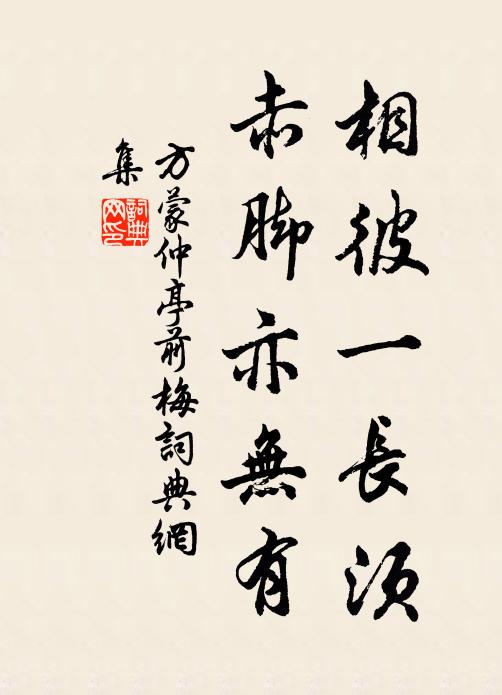 相彼一長須
赤脚亦無有
方蒙仲亭前梅詞典網
集
詞典網印